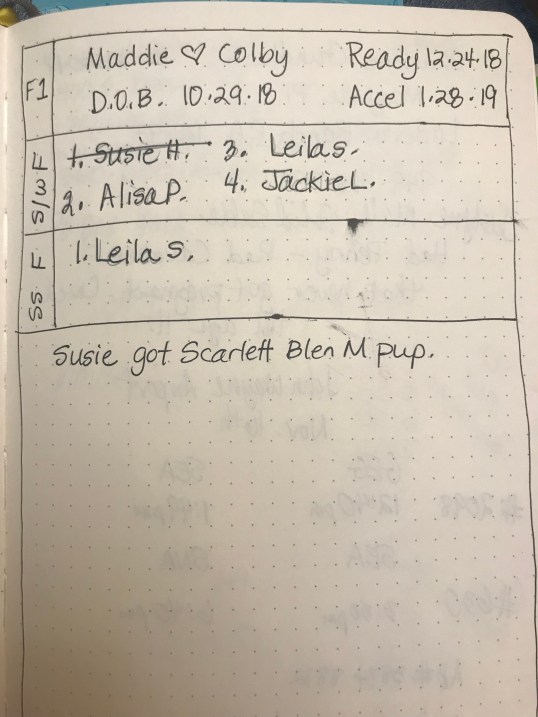 F1
Maddie ♡ Colby Ready 12.24.18
D.O.B. 10.29.18 Accel 1.28.19
S/W F
1. Susie H. 3. Leila S.
2. Alisa P. 4. Jackie L.
SS F
1. Leila S.
Susie got Scarlett Blen M pup.